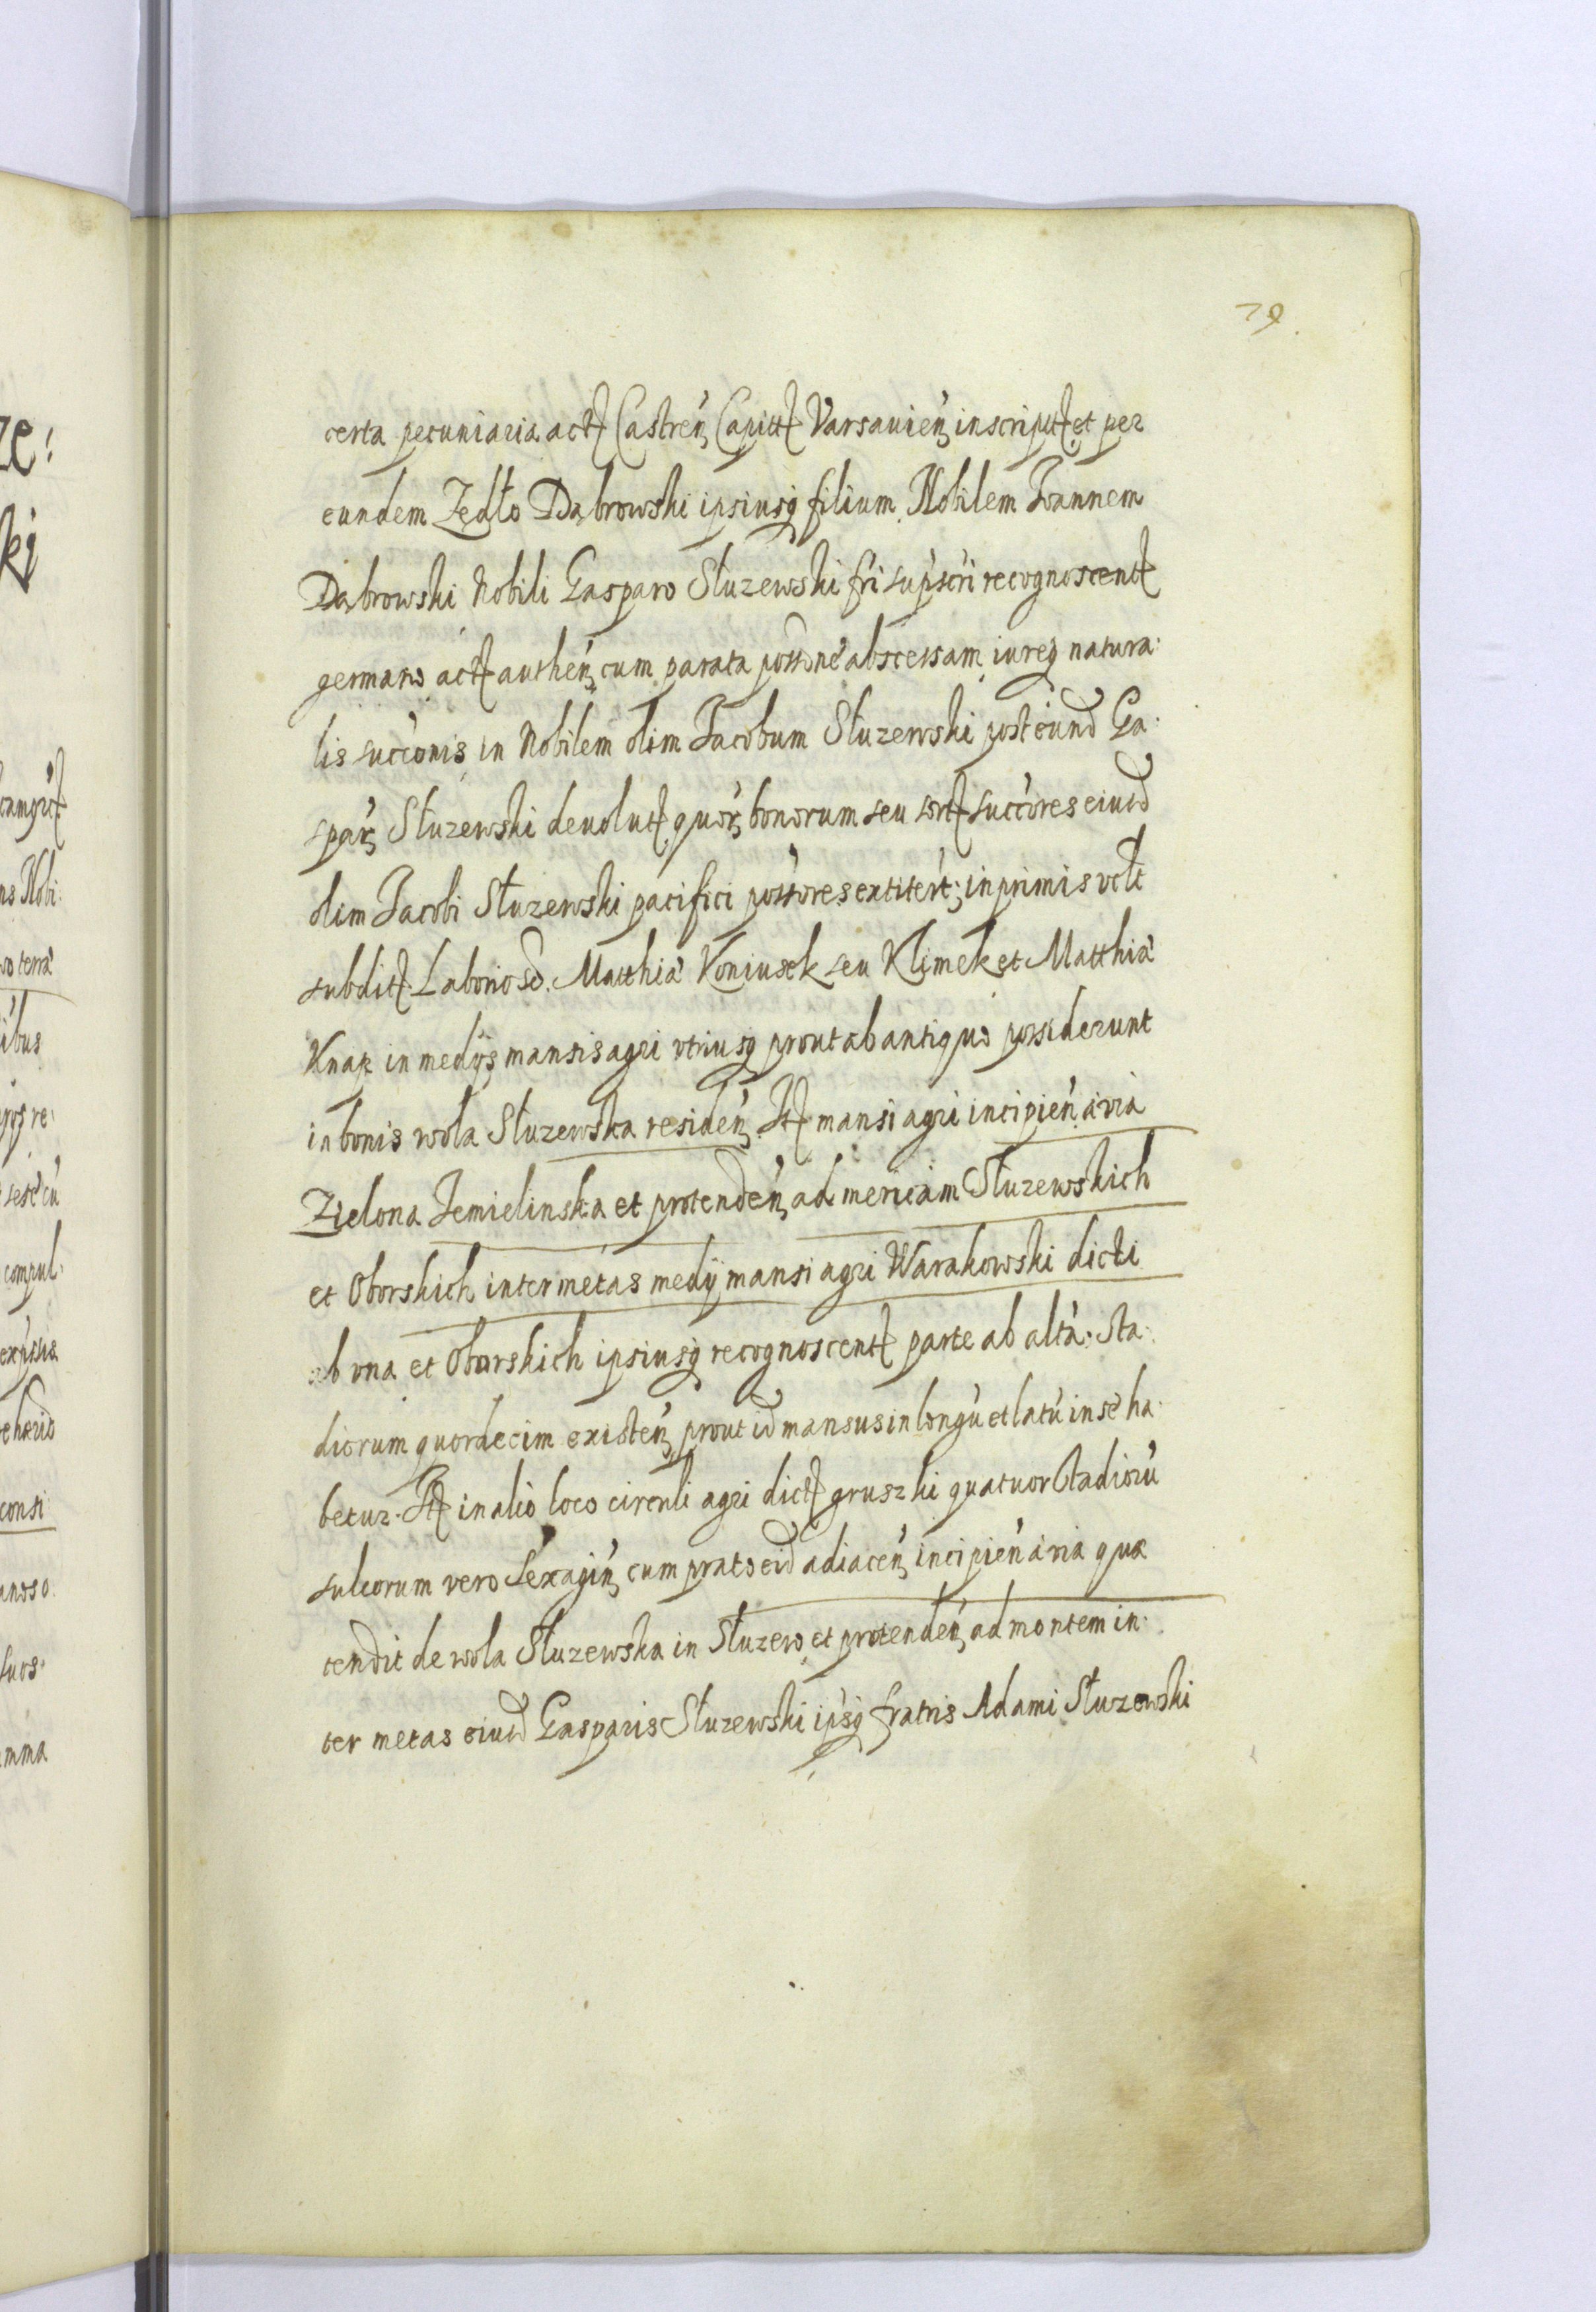 79
certa pecuniaria act Castreń Capitt Varsauień inscript et per
eundem Zędło Dąbrowski ipsiusq filium Nobilem Joannem
Dąbrowski Nobili Gasparo Służewski fri supscri recognoscent
germano act authen cum parata possone abscessam iureq natura:
lis succonis in Nobilem olim Jacobum Służewski post eund Ga:
spar Służewski deuolut quor bonorum seu sort succores eiusd
olim Jacobi Służewski pacifici possores extiter̄t; inprimis vclt
subdit Laborioso. Matthia Koniusek seu Klimek et Matthia
Knap in medijs mansis agri vtriusq prout ab antiquo possiderunt
in bonis wola Służewska residen̄ It mansi agri incipień a via
Zielona Jemielinska et protenden̄ ad mericam Służewskich
et Oborskich inter metas medij mansi agri Warakowski dicti
ab vna et Oborskich ipsiusq recognoscent parte ab alta. Sta:
diorum quordecim existen̄ prout id mansus in longu et latu in se ha:
betur. It in alio loco circuli agri dict gruszki quatuor Stadioru
sulcorum vero sexagin̄ cum prato eid adiacen̄ incipień a via quæ
tendit de wola Służewska in Służew et protenden̄ ad montem in:
ter metas eiusd Gasparis Służewski ipsq fratris Adami Służewski